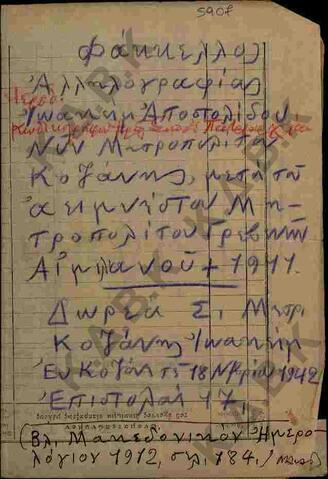 5908
Φάκκελλος
Ἀλληλογραφίας
Ἱεροδ.
Ἰωακεὶμ Ἀποστολίδου
Νῦν Μητροπολίτου
Κοζάνης, μετὰ τοῦ
ἀειμνήστου Μη-
τροπολίτου Γρεβενῶν
Αἰμιλιανοῦ + 1911.
Δωρεὰ Σ. Μητρ.
Κοζάνης Ἰωακεὶμ
Ἐν Κοζάνῃ τῇ 18 Μαρτίου 1942
Ἐπιστολαὶ 17.
(Βλ. Μακεδονικὸν Ἡμερο-
λόγιον 1912, σελ. 184.)
Κ.Α.Β.Κ